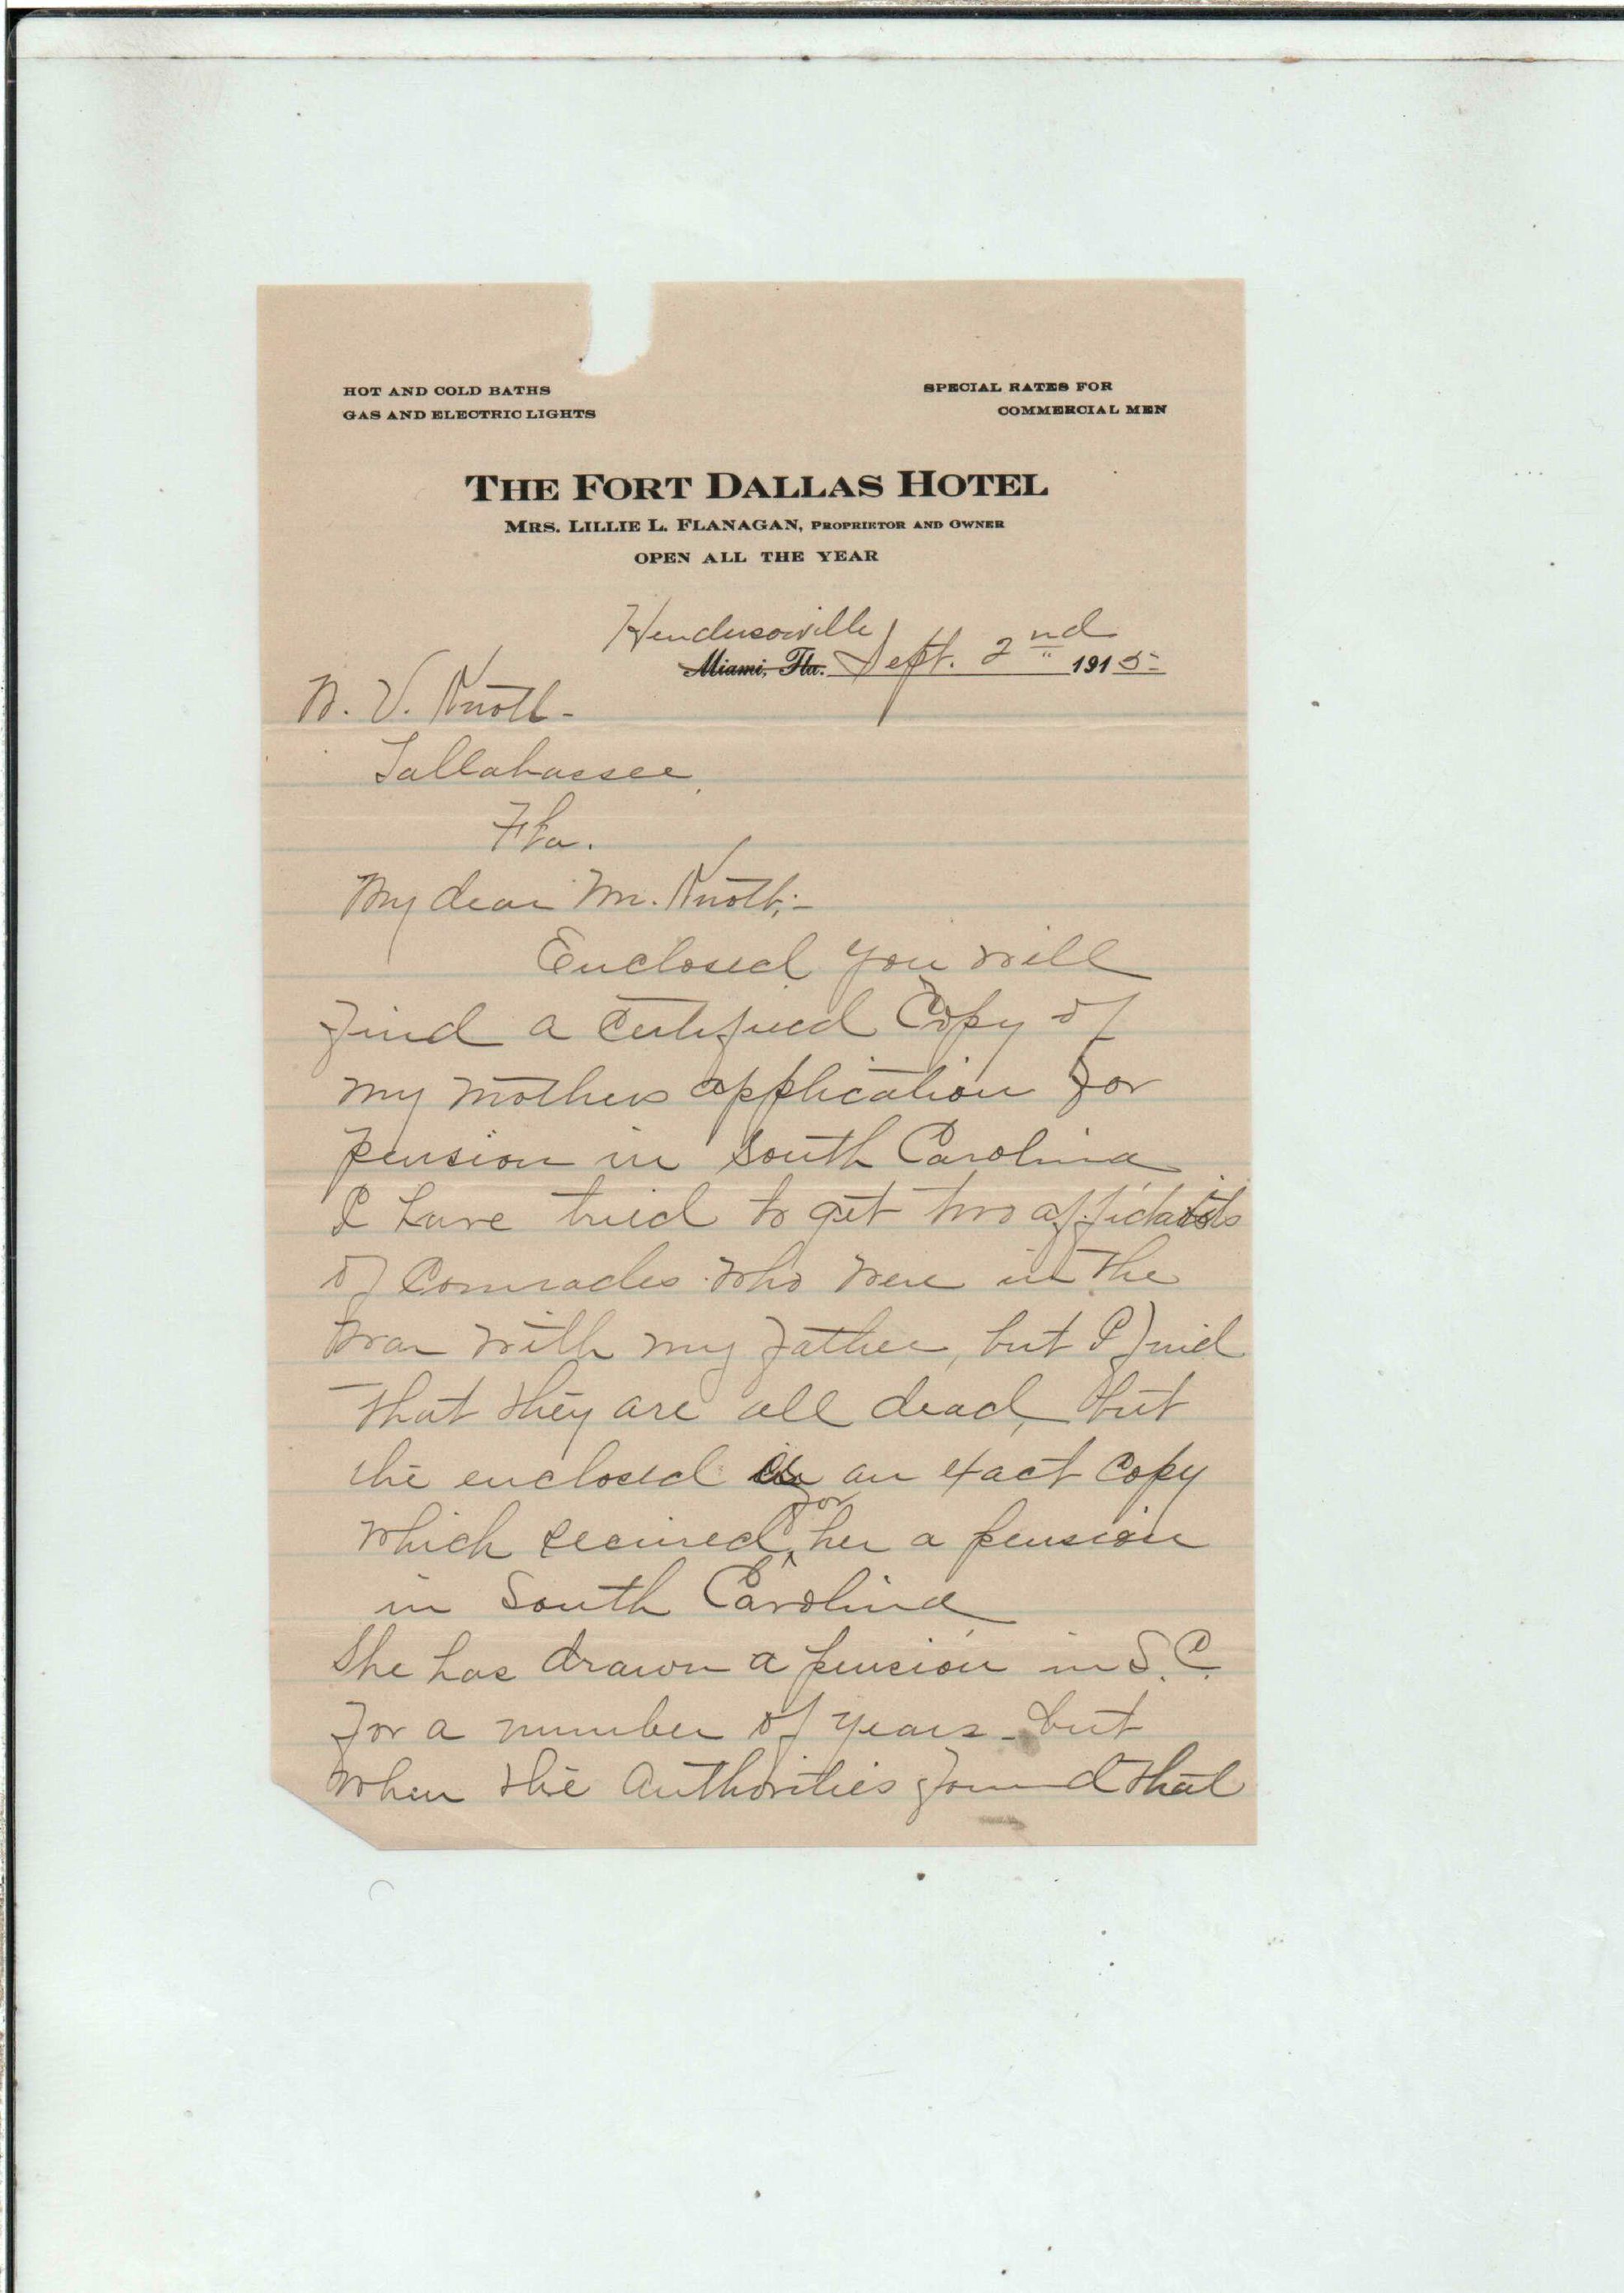 HOT AND COLD BATHS
GAS AND ELECTRIC LIGHTS
SPECIAL RATES FOR
COMMERCIAL MEN
THE FORT DALLAS HOTEL
MRS. LILLIE L. FLANAGAN, PROPRIETOR AND OWNER
OPEN ALL THE YEAR
Hendersonville
Miami, Fla. Sept. 2nd 1915
W. V. Knott-
Tallahassee,
Fla.
My dear Mr. Knott;-
Enclosed you will
find a Certified Copy of
my mothers application for
pension in South Carolina
I have tried to get two affidavits
of Comrades who were in the
war with my father, but I find
that they are all dead, but
the enclosed is an exact copy
which secured for her a pension
in South Carolina
She has drawn a pension in S.C.
for a number of years - but
when the authorities found that